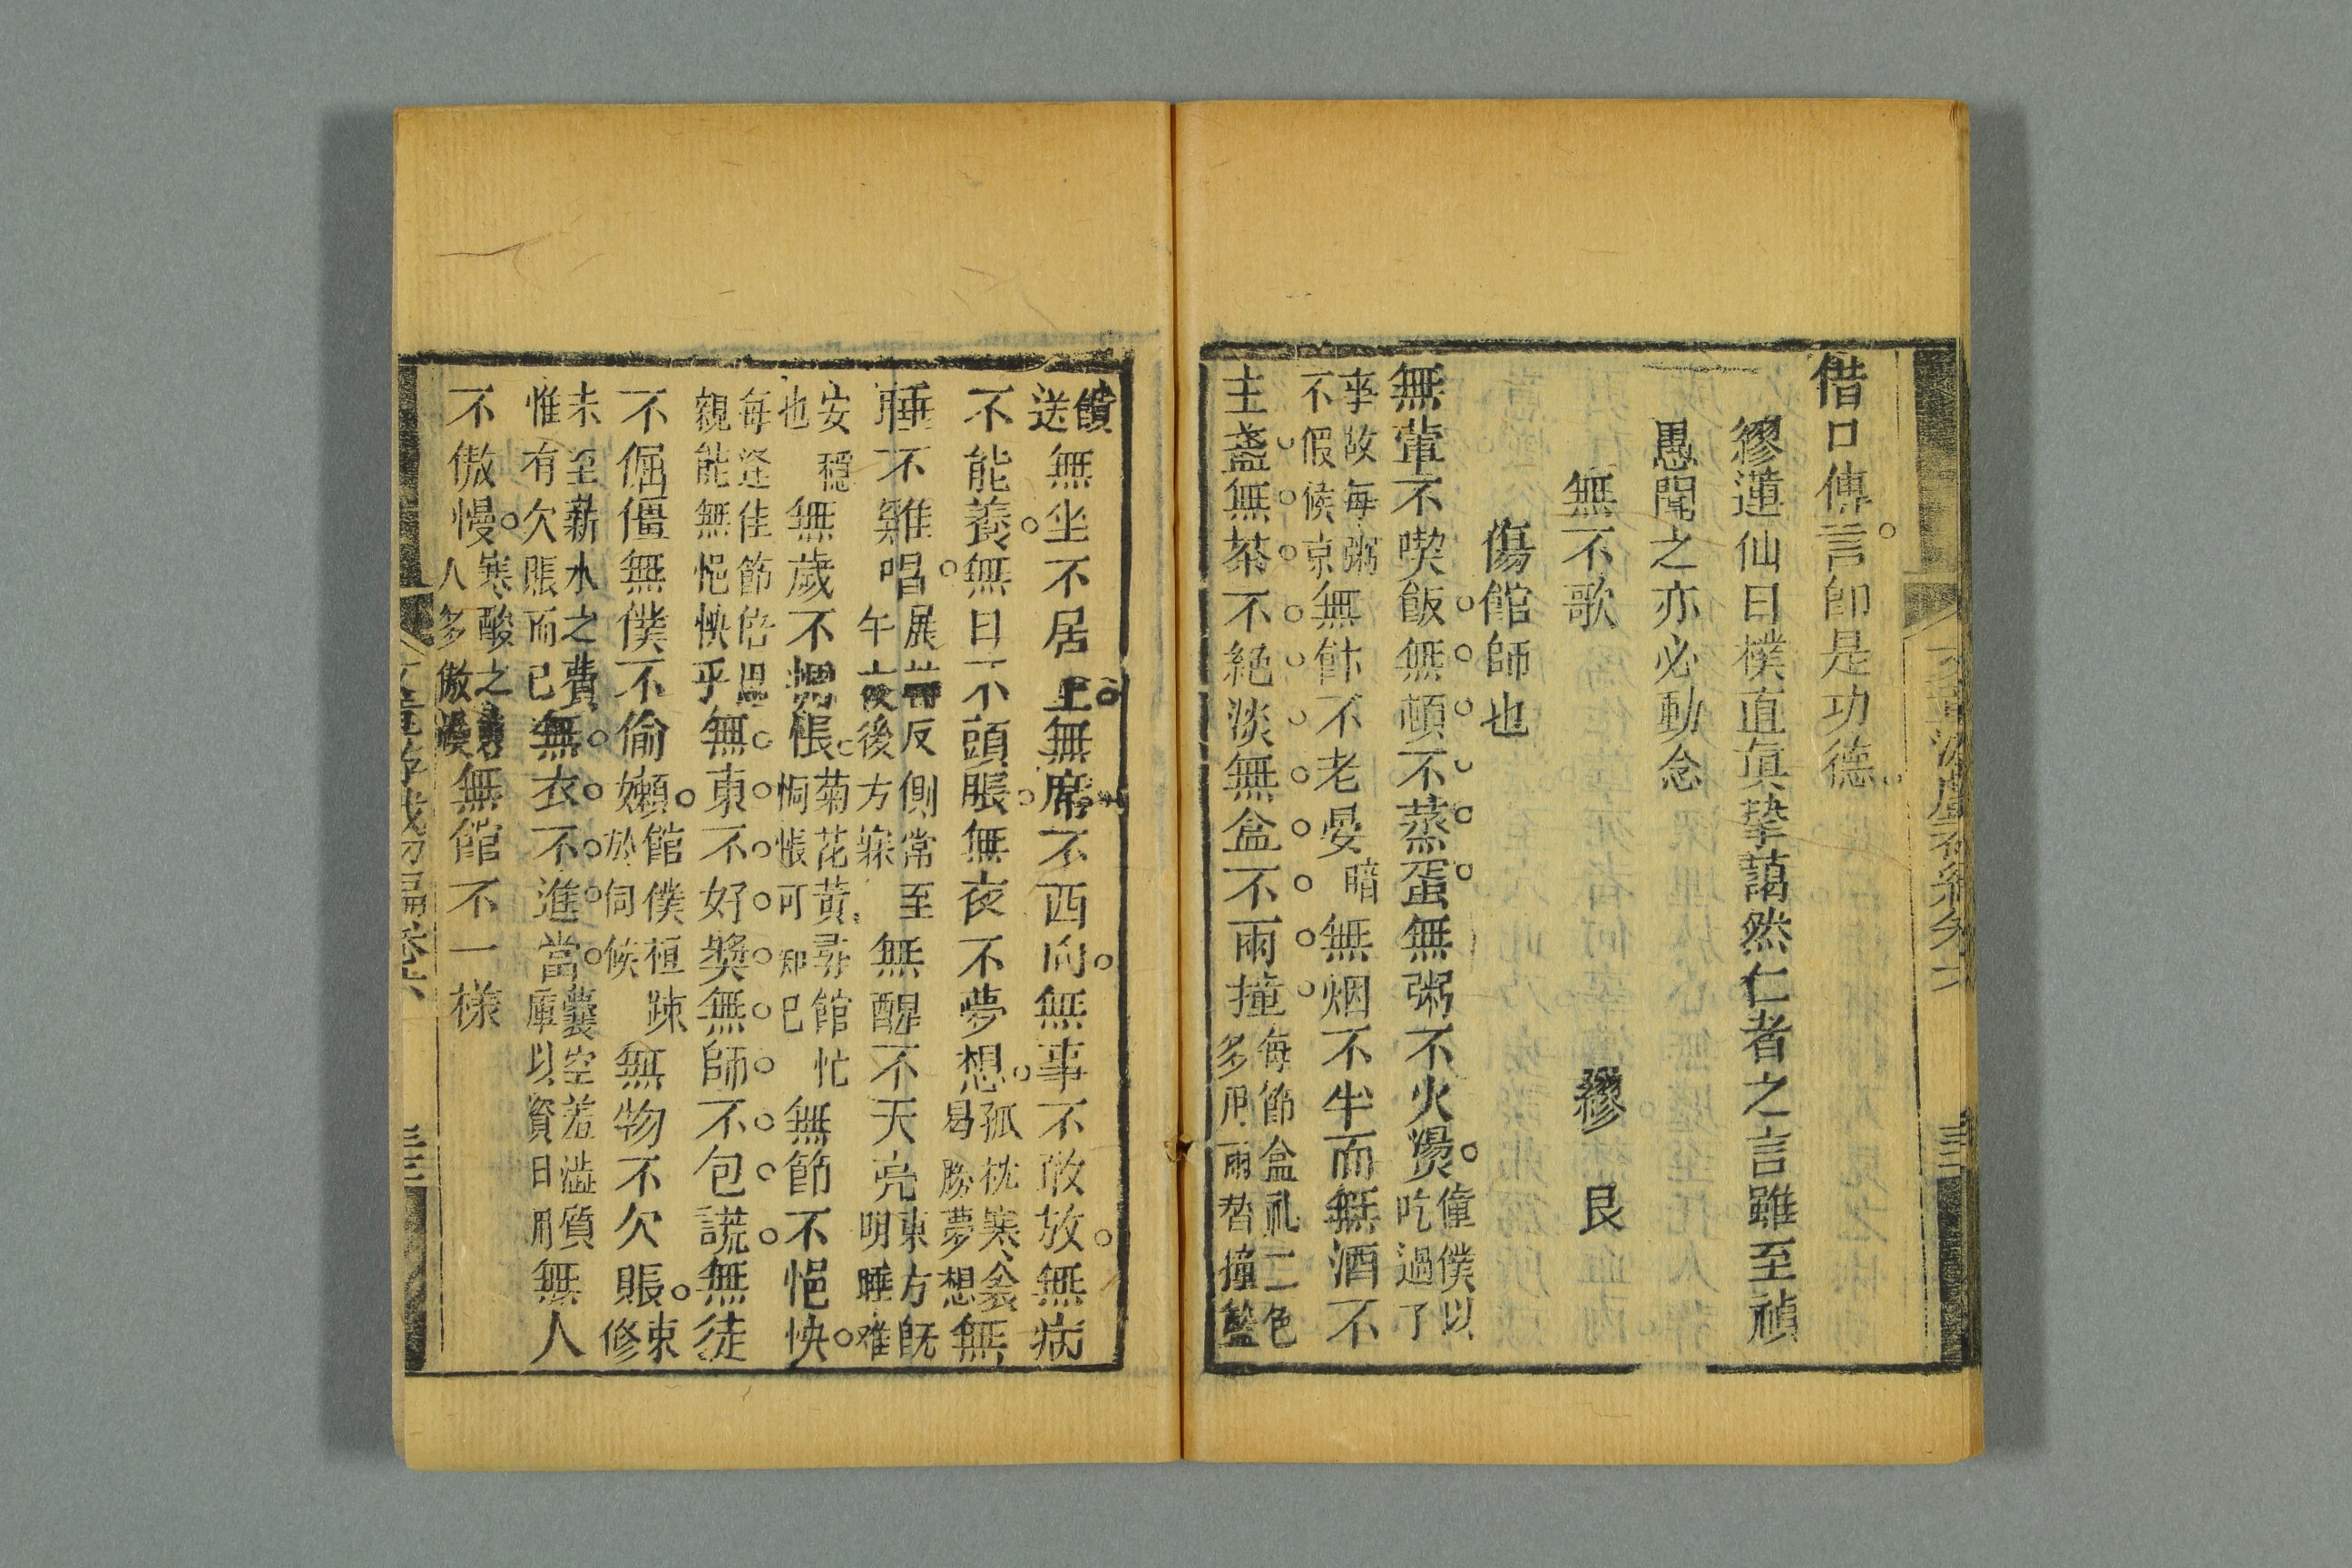 借口傳言卽是功德
繆蓮仙曰樸直眞摯藹然仁者之言雖至禎
愚聞之亦必動念
無不歌 繆艮
傷館師也
無葷不喫飯無頓不蒸蛋無粥不火燙僮僕以吃過了
事故每粥不假候京無飰不老晏暗無烟不牛而無酒不
主盞無茶不絕淡無盒不雨撞每節盒礼二色多用雨替撞盤
饋送無坐不居上無席不西向無事不敢放無病
不能養無日不頭脹無夜不夢想孤枕寒衾曷勝夢想無
睡不雞唱展轉反側常至午夜後方寐無醒不天亮東方旣明睡难
安穩也無歲不惆悵菊花黄尋館忙惆悵可知已無節不悒怏
每逢佳節倍思親能無悒怏乎無東不好獎無師不包謊無徒
不倔僵無僕不偷嬾館僕桓踈於伺候無物不欠賬束修
未至薪水之費惟有欠賬而已無衣不進當囊空羞澁質庫以資日用無人
不傲慢寒酸之人多傲慢無館不一樣